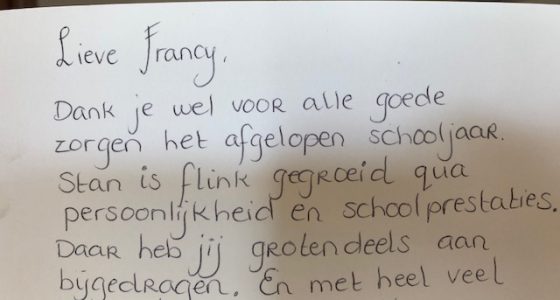 Lieve Francy,
Dank je wel voor alle goede
zorgen het afgelopen schooljaar.
Stan is flink gegroeid qua
persoonlijkheid en schoolprestaties.
Daar heb jij grotendeels aan
bijgedragen. En met heel veel